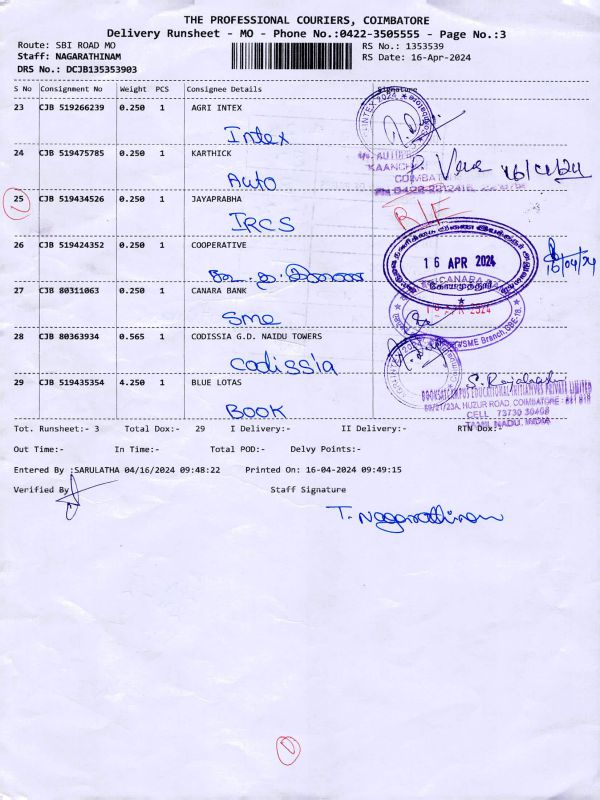 THE PROFESSIONAL COURIERS, COIMBATORE
Delivery Runsheet - MO - Phone No.:0422-3505555 - Page No.:3
Route: SBI ROAD MO RS No.: 1353539
Staff: NAGARATHINAM RS Date: 16-Apr-2024
DRS No.: DCJB135353903
S No Consignment No Weight PCS Consignee Details Signature
23 CJB 519266239 0.250 1 AGRI INTEX
Intex
24 CJB 519475785 0.250 1 KARTHICK
Auto
25 CJB 519434526 0.250 1 JAYAPRABHA
IRCS
26 CJB 519424352 0.250 1 COOPERATIVE
16 APR 2024
கோயமுத்தூர்
16/04/24
27 CJB 80311063 0.250 1 CANARA BANK
Sme
28 CJB 80363934 0.565 1 CODISSIA G.D. NAIDU TOWERS
Codissia
29 CJB 519435354 4.250 1 BLUE LOTAS
BOOK
BOOKSATCAMPUS EDUCATIONAL INITIATIVES PRIVATE LIMITED
HUZUR ROAD, COIMBATORE
CELL 73730 30408
TAMIL NADU, INDIA
Tot. Runsheet:- 3 Total Dox:- 29 I Delivery:- II Delivery:- RTN Dox:-
Out Time:- In Time:- Total POD:- Delvy Points:-
Entered By :SARULATHA 04/16/2024 09:48:22 Printed On: 16-04-2024 09:49:15
Verified By Staff Signature
T. Nagarathinam